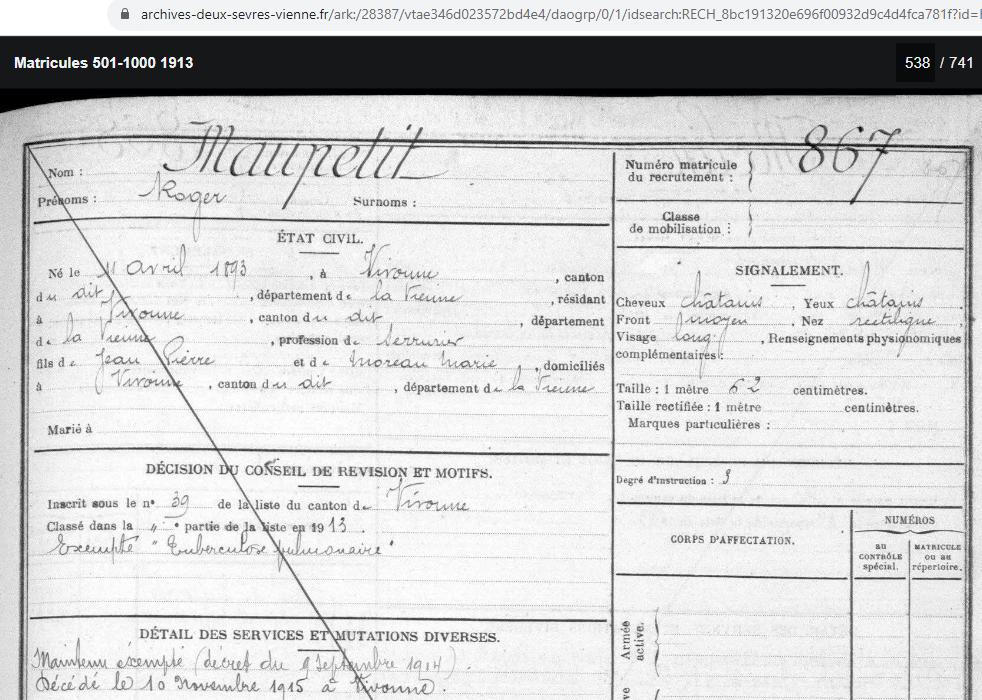 archives-deux-sevres-vienne.fr/ark:/28387/vtae346d023572bd4e4/daogrp/0/1/idsearch:RECH_8bc191320e696f00932d9c4d4fca781f?id=
Matricules 501-1000 1913
538 / 741
Nom : Maupetit
Prénoms : Roger Surnoms :
Numéro matricule du recrutement : 867
Classe de mobilisation :
ÉTAT CIVIL.
Né le 11 avril 1893, à Vivonne, canton
du dit, département de la Vienne, résidant
à Vivonne, canton du dit, département
de la Vienne, profession de Serrurier
fils de Jean Pierre et de Moreau Marie, domiciliés
à Vivonne, canton du dit, département de la Vienne
Marié à
SIGNALEMENT.
Cheveux châtains, Yeux châtains.
Front moyen. Nez rectiligne,
Visage long, Renseignements physionomiques
complémentaires :
Taille : 1 mètre 62 centimètres.
Taille rectifiée : 1 mètre centimètres.
Marques particulières :
DÉCISION DU CONSEIL DE REVISION ET MOTIFS.
Inscrit sous le n° 39 de la liste du canton de Vivonne
Classé dans la " • partie de la liste en 1913.
Exempté "Tuberculose pulmonaire"
Degré d'instruction : 3
CORPS D'AFFECTATION.
NUMÉROS
au CONTRÔLE spécial.
MATRICULE ou au répertoire.
Armée active.
DÉTAIL DES SERVICES ET MUTATIONS DIVERSES.
Maintenu exempté (décret du 9 Septembre 1914).
Décédé le 10 Novembre 1915 à Vivonne.